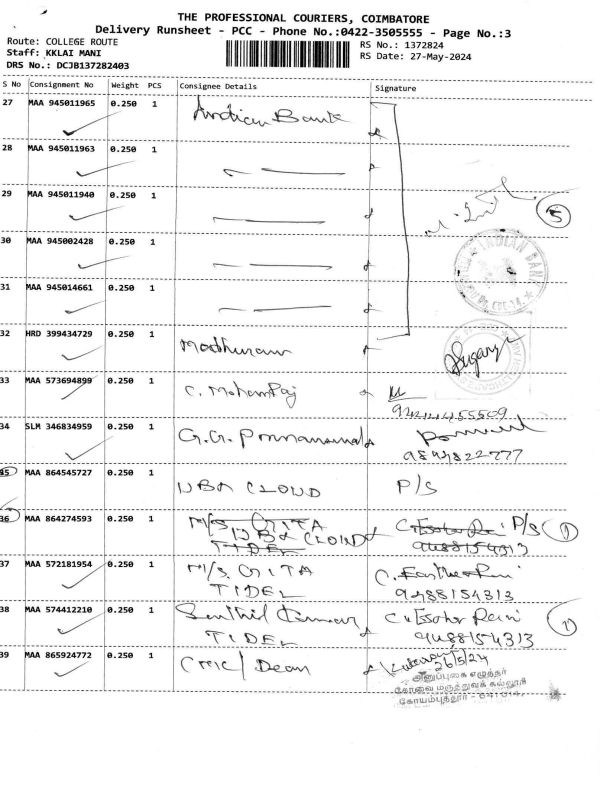 THE PROFESSIONAL COURIERS, COIMBATORE
Delivery Runsheet - PCC - Phone No.:0422-3505555 - Page No.:3
Route: COLLEGE ROUTE
RS No.: 1372824
Staff: KKLAI MANI
RS Date: 27-May-2024
DRS No.: DCJB137282403
S No Consignment No Weight PCS Consignee Details Signature
27 MAA 945011965 0.250 1 Indian Bank
28 MAA 945011963 0.250 1
29 MAA 945011940 0.250 1
5
30 MAA 945002428 0.250 1
INDIAN BANK
31 MAA 945014661 0.250 1
32 HRD 399434729 0.250 1
33 MAA 573694899 0.250 1 C. MohanRaj
34 SLM 346834959 0.250 1
9844822777
35 MAA 864545727 0.250 1 CLOUD P/S
36 MAA 864274593 0.250 1 M/S GITA P/S 1
CLOUD
TIDEL 9488154313
37 MAA 572181954 0.250 1 M/S. GITA
TIDEL 9488154313
38 MAA 574412210 0.250 1 Senthil Kumar
TIDEL 9488154313 1
39 MAA 865924772 0.250 1 Dean
26/5/24
அனுப்புகை எழுத்தர்
கோவை மருத்துவக் கல்லூரி
கோயம்புத்தூர் - 641014.